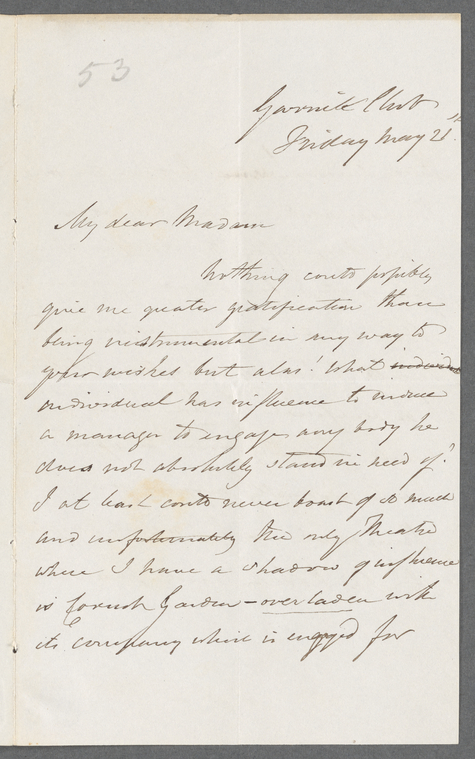 53
Garrick Club
Friday May 21st.
My dear Madam
Nothing could possibly
give me greater gratification than
being instrumental in any way to
your wishes but alas! what
individual has influence to induce
a manager to engage any body he
does not absolutely stand in need of?
I at least could never boast of so much
and unfortunately the only Theatre
where I have a shadow of influence
is Covent Garden - overladen with
its company which is engaged for